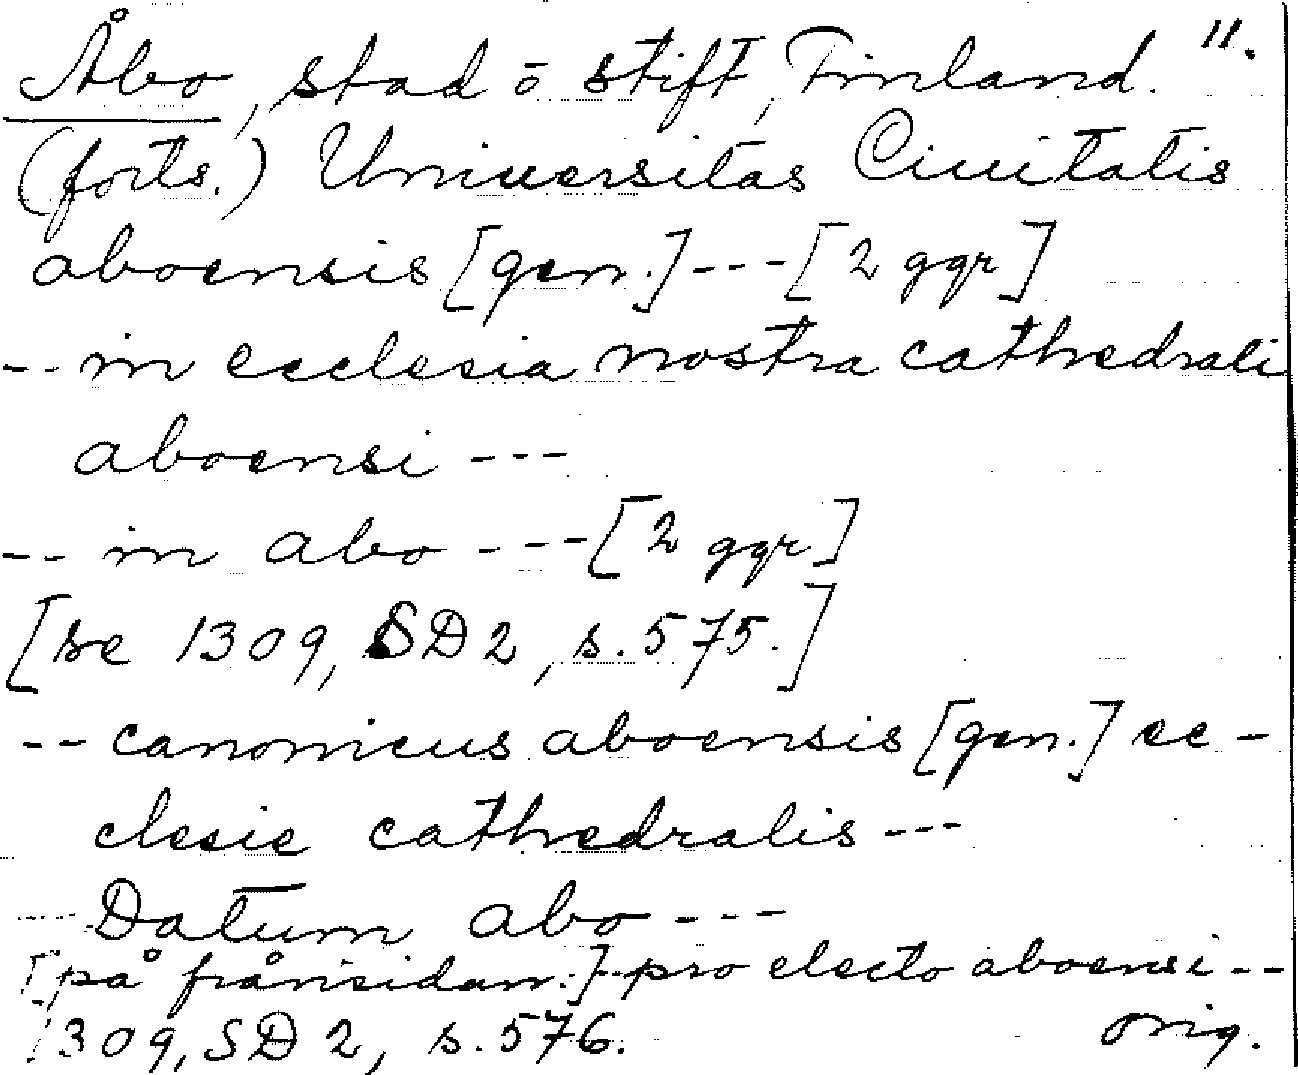 Åbo, stad o stift, Finland. 11.
(forts.) Universitas Ciuitatis
aboensis [gen.] --- [2 ggr]
-- in ecclesia nostra cathedrali
aboensi ---
-- in abo --- [2 ggr]
[se 1309, SD 2, s. 575.]
-- canonicus aboensis [gen.] ec-
clesie cathedralis ---
--- Datum abo ---
[på frånsidan:] -- pro electo aboensi --
1309, SD 2, s. 576. orig.